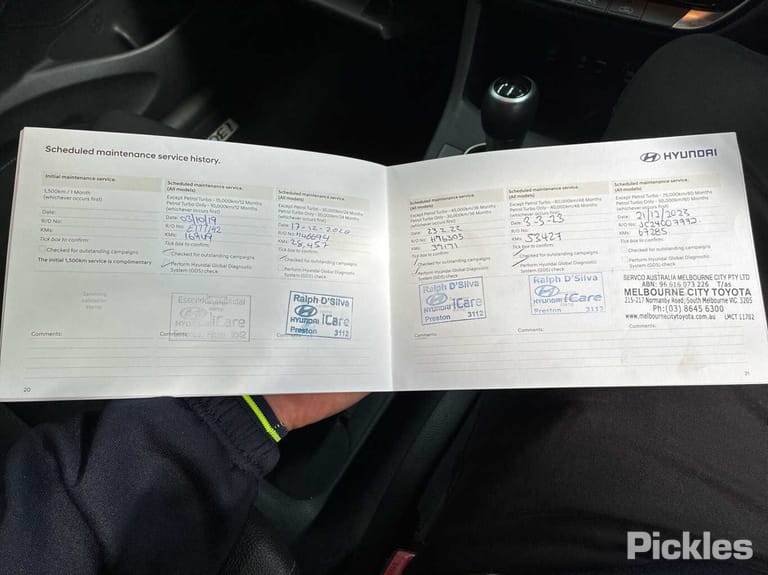 Scheduled maintenance service history.
HYUNDAI
Initial maintenance service.
1,500km / 1 Month
(whichever occurs first)
Date:
R/O No:
KMs:
Tick box to confirm:
Checked for outstanding campaigns
The initial 1,500km service is complimentary
Comments:
20
Scheduled maintenance service.
(All models)
Except Petrol Turbo - 15,000km/12 Months
Petrol Turbo Only - 10,000km/12 Months
(whichever occurs first)
Date:
R/O No:
KMs:
Tick box to confirm:
Checked for outstanding campaigns
Perform Hyundai Global Diagnostic
System (GDS) check
iCare
Comments:
Scheduled maintenance service.
(All models)
Except Petrol Turbo - 30,000km/24 Months
Petrol Turbo Only - 20,000km/24 Months
(whichever occurs first)
Date: 17-12-2020
R/O No: H46694
KMs: 28,457
Tick box to confirm:
Checked for outstanding campaigns
Perform Hyundai Global Diagnostic
System (GDS) check
Ralph D'Silva
HYUNDAI iCare
Preston 3112
Comments:
Scheduled maintenance service.
(All models)
Except Petrol Turbo - 45,000km/36 Months
Petrol Turbo Only - 30,000km/36 Months
(whichever occurs first)
Date: 23.2.22
R/O No: H76303
KMs: 39171
Tick box to confirm:
Checked for outstanding campaigns
Perform Hyundai Global Diagnostic
System (GDS) check
Ralph D'Silva
HYUNDAI iCare
Preston 3112
Comments:
Scheduled maintenance service.
(All models)
Except Petrol Turbo - 60,000km/48 Months
Petrol Turbo Only - 40,000km/48 Months
(whichever occurs first)
Date: 3.3.23
R/O No:
KMs: 53427
Tick box to confirm:
Checked for outstanding campaigns
Perform Hyundai Global Diagnostic
System (GDS) check
Ralph D'Silva
HYUNDAI iCare
Preston 3112
Comments:
Scheduled maintenance service.
(All models)
Except Petrol Turbo - 75,000km/60 Months
Petrol Turbo Only - 50,000km/60 Months
(whichever occurs first)
Date: 21/12/2023
R/O No: JC24007772
KMs: 67285
Tick box to confirm:
Checked for outstanding campaigns
Perform Hyundai Global Diagnostic
System (GDS) check
SERVCO AUSTRALIA MELBOURNE CITY PTY LTD
ABN: 96 616 073 226 T/as
MELBOURNE CITY TOYOTA
215-217 Normanby Road, South Melbourne VIC. 3205
Ph:(03) 8645 6300
www.melbournecitytoyota.com.au LMCT 11702
Comments:
21
Pickles